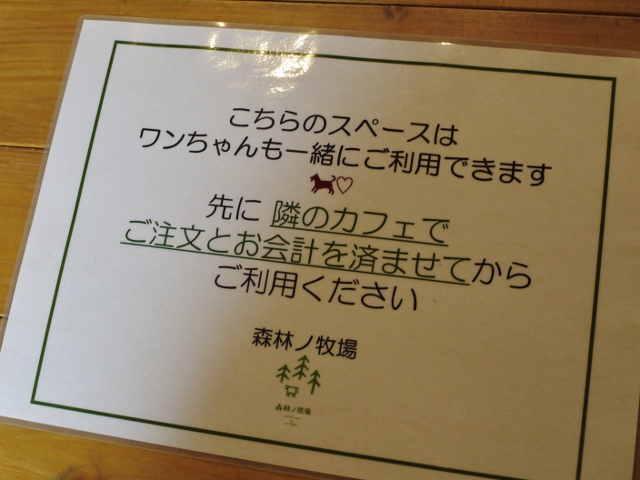 こちらのスペースは
ワンちゃんも一緒にご利用できます
先に 隣のカフェで
ご注文とお会計を済ませてから
ご利用ください
森林ノ牧場
森林ノ牧場